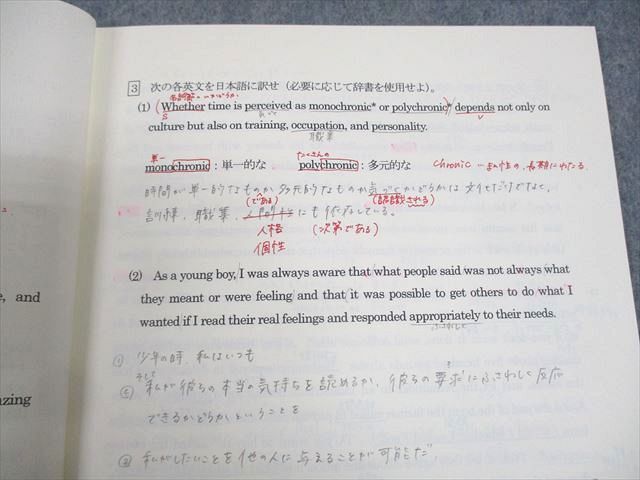 3 次の各英文を日本語に訳せ（必要に応じて辞書を使用せよ）。
(1) Whether time is perceived as monochronic* or polychronic* depends not only on
S
V
culture but also on training, occupation, and personality.
職業
単一
たくさんの
monochronic：単一的な polychronic：多元的な chronic
訓練、職業、人間性にも依存している。
(である)
(認識される)
人格 (次第である)
個性
(2) As a young boy, I was always aware that what people said was not always what
they meant or were feeling and that it was possible to get others to do what I
wanted if I read their real feelings and responded appropriately to their needs.
ふさわしく
① 少年の時、私はいつも
そして
私が彼らの本当の気持ちを読めるか、彼らの要求にふさわしく反応
できるかどうかということを
私がしたいことを他の人に与えることが可能だ
e, and
azing